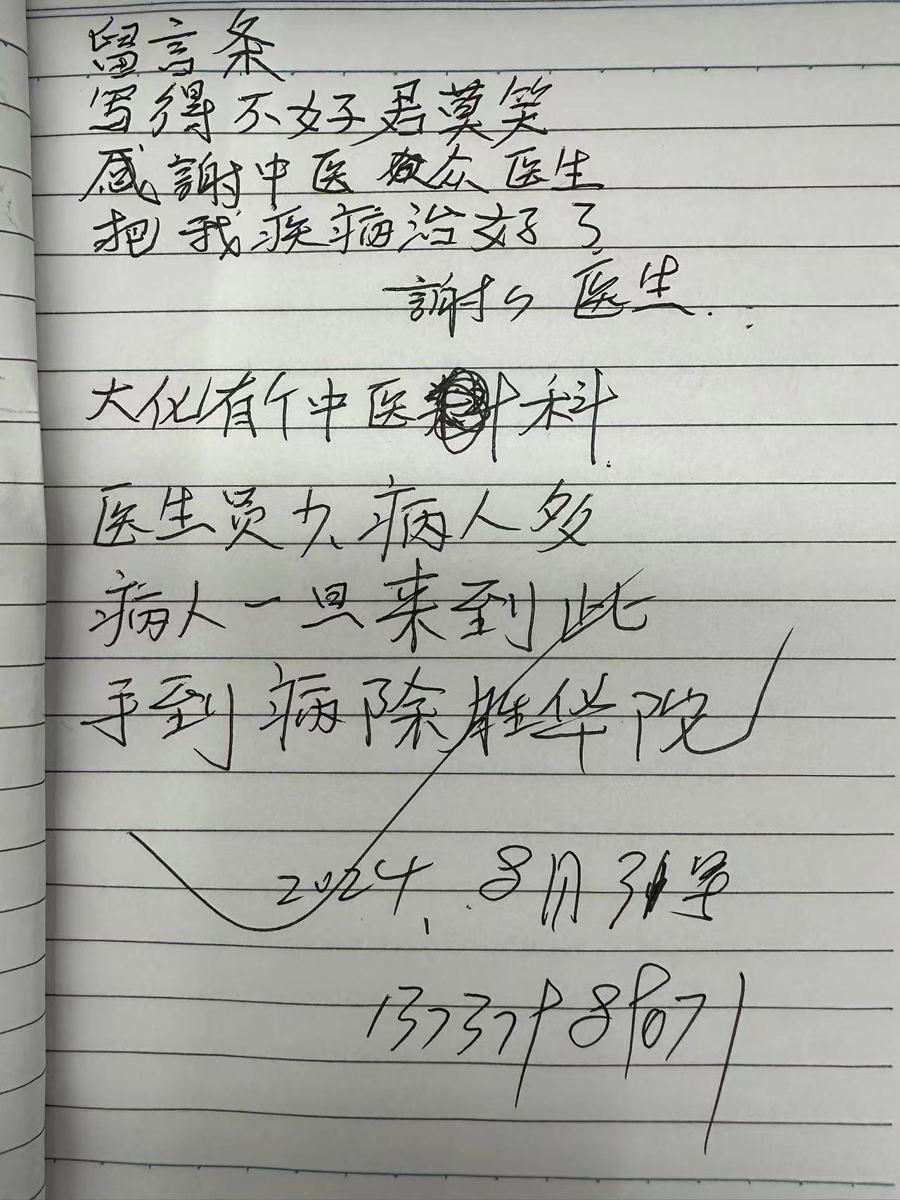 留言条
写得不好君莫笑
感謝中医众医生
把我疾病治好了
謝々医生...
大化有个中医科
医生员少病人多
病人一旦来到此
手到病除胜华佗
2024.8月31号